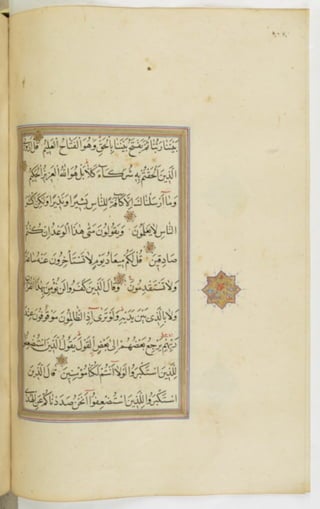 بَيْنَنَا رَبُّنَا ثُمَّ يَفْتَحُ بَيْنَنَا بِالْحَقِّ وَهُوَ الْفَتَّاحُ الْعَلِيمُ قُلْ أَرُونِيَ
الَّذِينَ أَلْحَقْتُمْ بِهِ شُرَكَآءَ كَلَّا بَلْ هُوَ اللَّهُ الْعَزِيزُ الْحَكِيمُ
وَمَا أَرْسَلْنَاكَ إِلَّا كَافَّةً لِلنَّاسِ بَشِيرًا وَنَذِيرًا وَلَكِنَّ أَكْثَرَ
النَّاسِ لَا يَعْلَمُونَ وَيَقُولُونَ مَتَى هَذَا الْوَعْدُ إِنْ كُنْتُمْ
صَادِقِينَ قُلْ لَكُمْ مِيعَادُ يَوْمٍ لَا تَسْتَأْخِرُونَ عَنْهُ سَاعَةً
وَلَا تَسْتَقْدِمُونَ وَقَالَ الَّذِينَ كَفَرُوا لَنْ نُؤْمِنَ بِهَذَا الْقُرْآنِ
وَلَا بِالَّذِي بَيْنَ يَدَيْهِ وَلَوْ تَرَى إِذِ الظَّالِمُونَ مَوْقُوفُونَ عِنْدَ
رَبِّهِمْ يَرْجِعُ بَعْضُهُمْ إِلَى بَعْضٍ الْقَوْلَ يَقُولُ الَّذِينَ اسْتُضْعِفُوا
لِلَّذِينَ اسْتَكْبَرُوا لَوْلَا أَنْتُمْ لَكُنَّا مُؤْمِنِينَ قَالَ الَّذِينَ
اسْتَكْبَرُوا لِلَّذِينَ اسْتُضْعِفُوا أَنَحْنُ صَدَدْنَاكُمْ عَنِ الْهُدَى